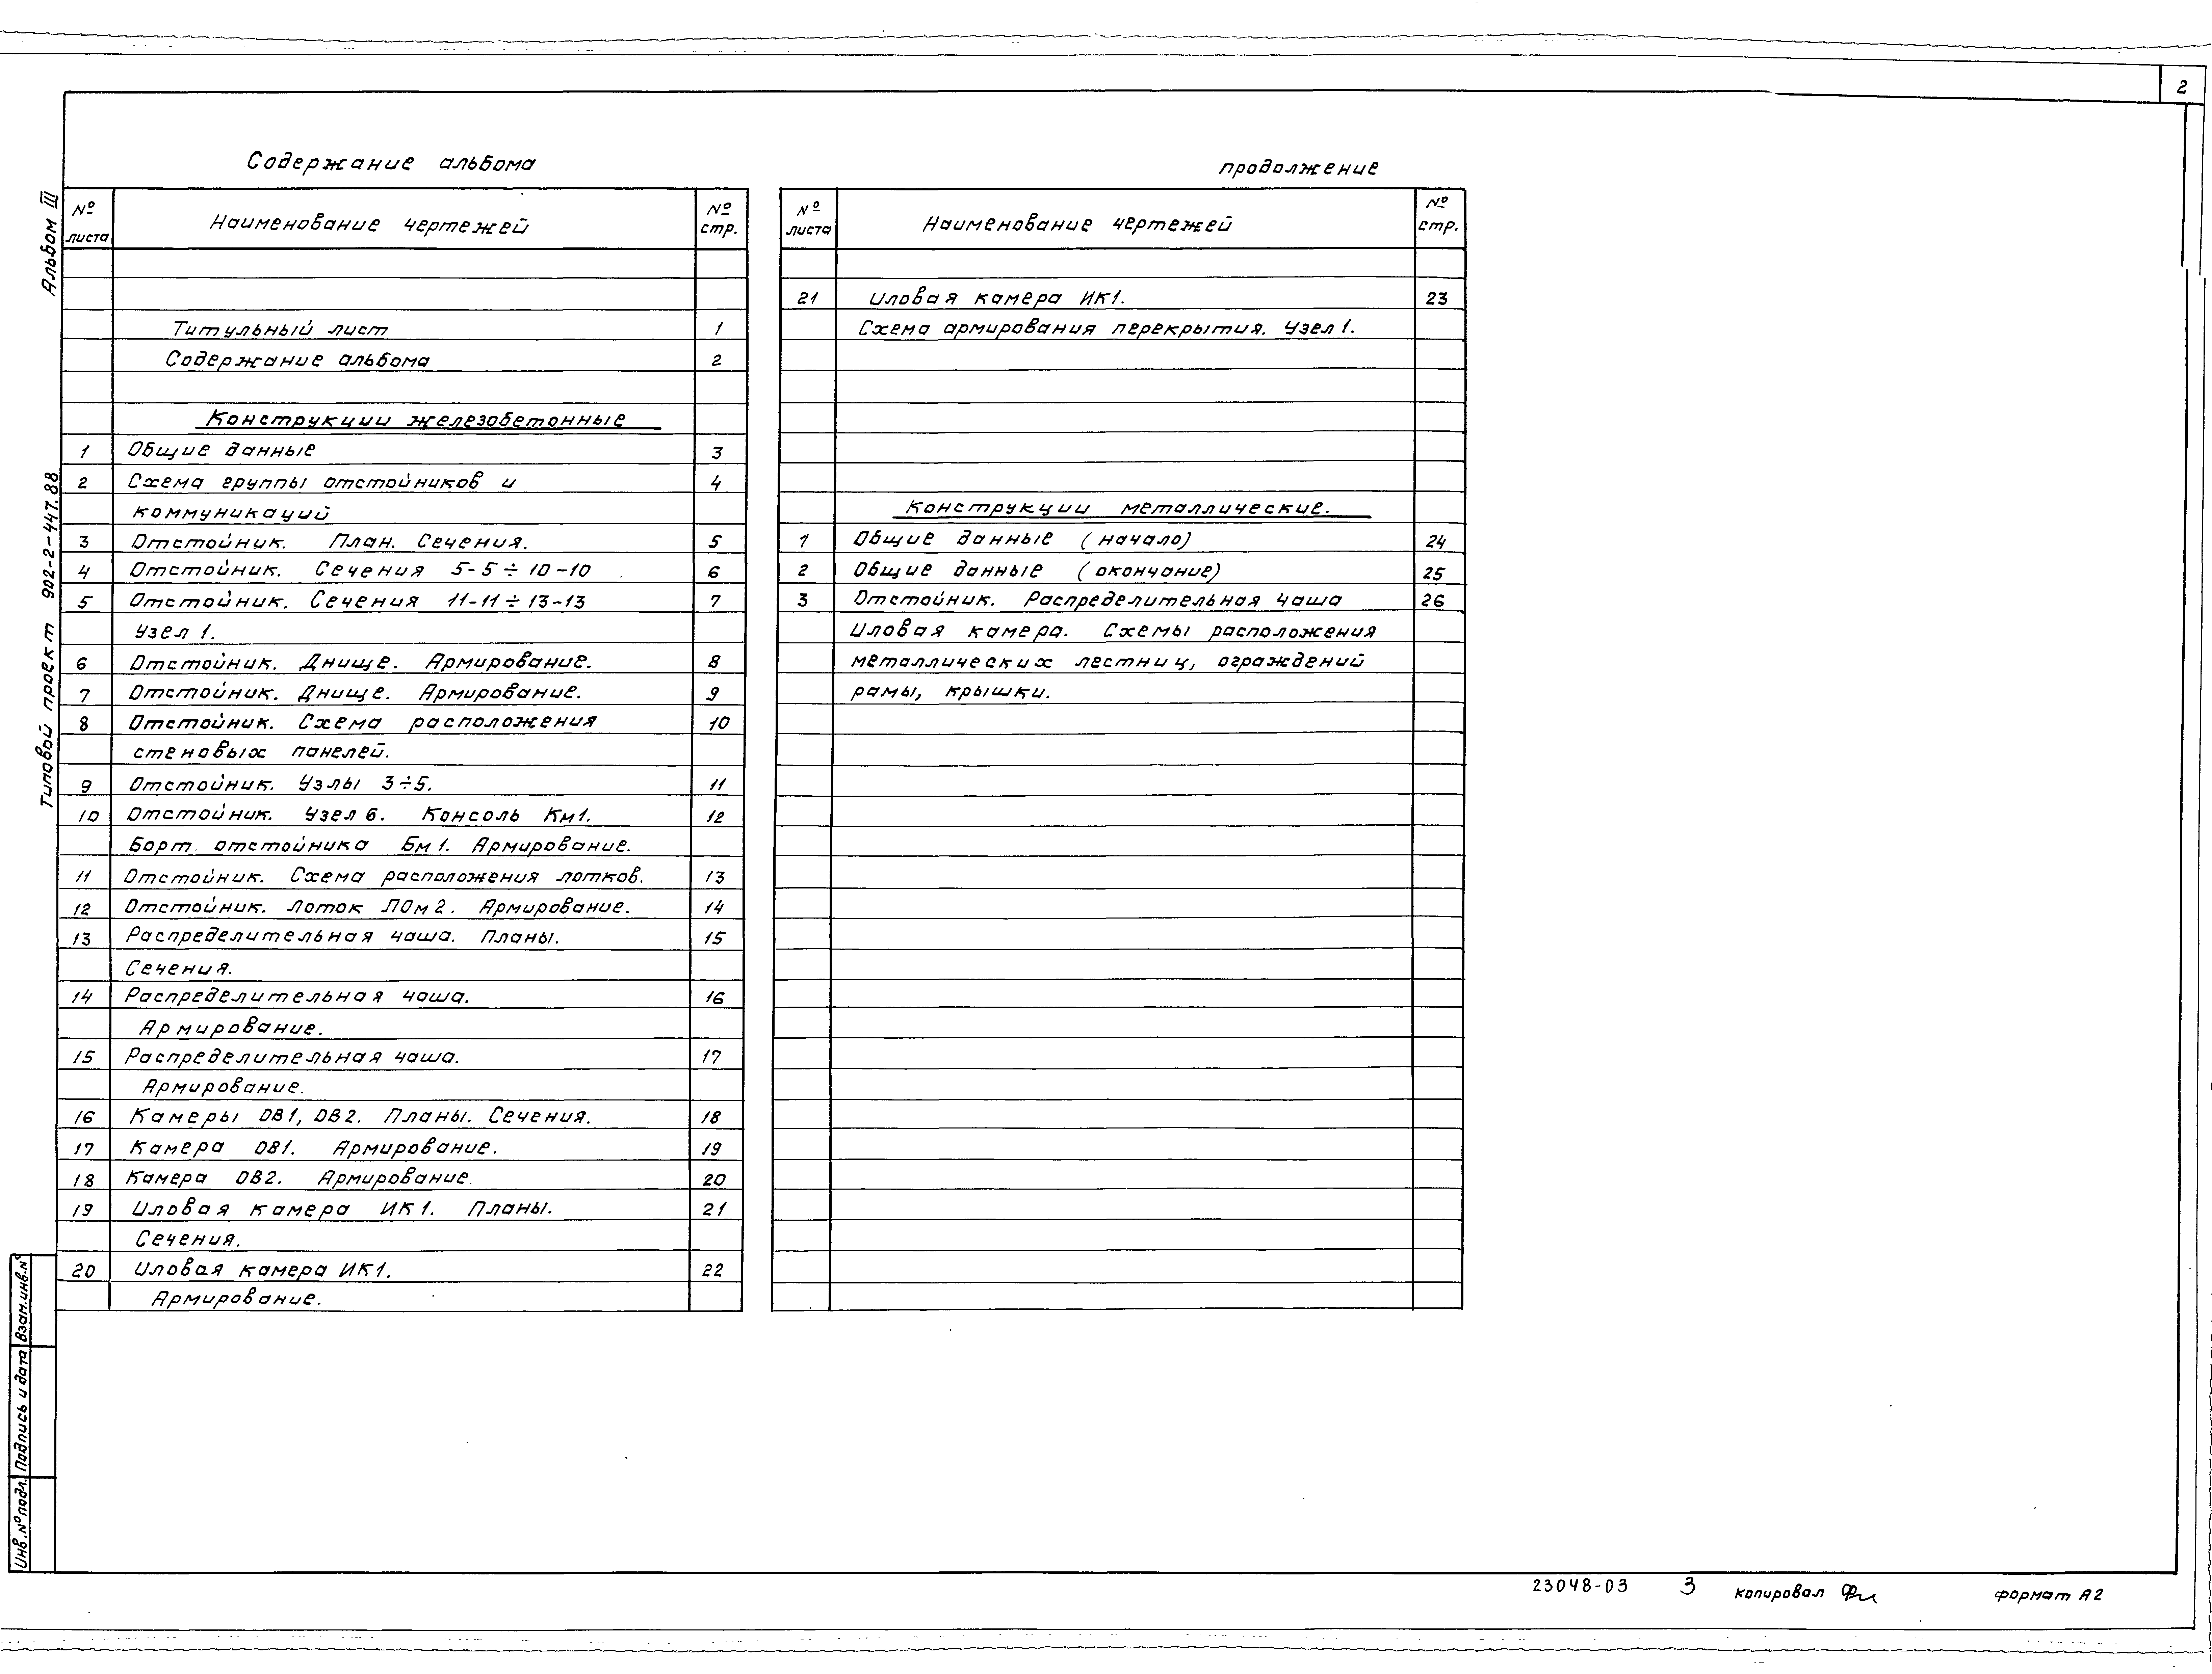 2
Альбом III
Типовой проект 902-2-447.88
Содержание альбома
№ листа Наименование чертежей № стр.
Титульный лист 1
Содержание альбома 2
Конструкции железобетонные
1 Общие данные 3
2 Схема группы отстойников и 4
коммуникаций
3 Отстойник. План. Сечения. 5
4 Отстойник. Сечения 5-5÷10-10 6
5 Отстойник. Сечения 11-11÷13-13 7
Узел 1.
6 Отстойник. Днище. Армирование. 8
7 Отстойник. Днище. Армирование. 9
8 Отстойник. Схема расположения 10
стеновых панелей.
9 Отстойник. Узлы 3÷5. 11
10 Отстойник. Узел 6. Консоль Км1. 12
Борт отстойника Бм1. Армирование.
11 Отстойник. Схема расположения лотков. 13
12 Отстойник. Лоток ЛОм2. Армирование. 14
13 Распределительная чаша. Планы. 15
Сечения.
14 Распределительная чаша. 16
Армирование.
15 Распределительная чаша. 17
Армирование.
16 Камеры ОВ1, ОВ2. Планы. Сечения. 18
17 Камера ОВ1. Армирование. 19
18 Камера ОВ2. Армирование. 20
19 Иловая камера ИК1. Планы. 21
Сечения.
20 Иловая камера ИК1. 22
Армирование.
продолжение
№ листа Наименование чертежей № стр.
21 Иловая камера ИК1. 23
Схема армирования перекрытия. Узел 1.
Конструкции металлические.
1 Общие данные (начало) 24
2 Общие данные (окончание) 25
3 Отстойник. Распределительная чаша 26
Иловая камера. Схемы расположения
металлических лестниц, ограждений
рамы, крышки.
Инв.№подл. Подпись и дата Взам.инв.№
23048-03 3 копировал формат А2